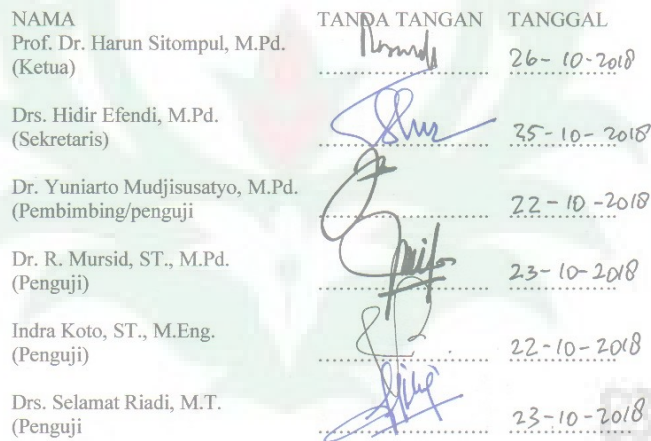 NAMA TANDA TANGAN TANGGAL
Prof. Dr. Harun Sitompul, M.Pd.
(Ketua) ........................ 26-10-2018
Drs. Hidir Efendi, M.Pd.
(Sekretaris) ........................ 35-10-2018
Dr. Yuniarto Mudjisusatyo, M.Pd.
(Pembimbing/penguji ........................ 22-10-2018
Dr. R. Mursid, ST., M.Pd.
(Penguji) ........................ 23-10-2018
Indra Koto, ST., M.Eng.
(Penguji) ........................ 22-10-2018
Drs. Selamat Riadi, M.T.
(Penguji ........................ 23-10-2018